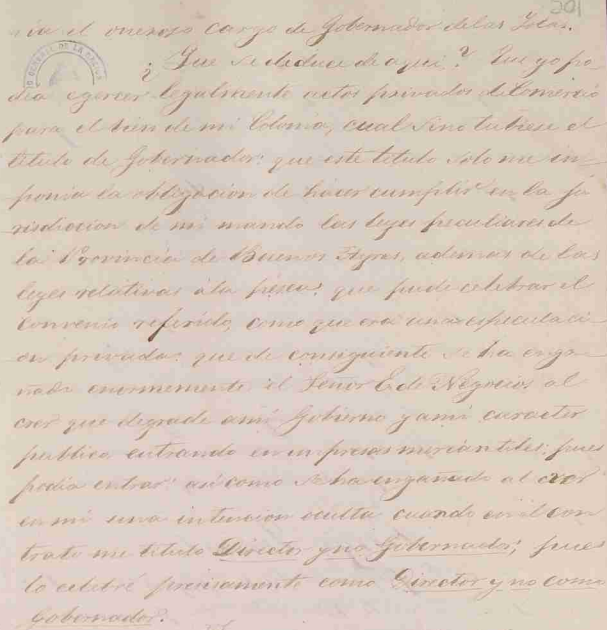 201
ria el oneroso cargo de Gobernador de las Yslas.
¿Que se deduce de aqui? Que yo po-
dia egercer legalmente actos privados de Comercio
para el bien de mi Colonia, cual sino tubiese el
titulo de Gobernador: que este titulo solo me im-
ponia la obligacion de hacer cumplir en la ju
risdiccion de mi mando las leyes peculiares de
la Provincia de Buenos Ayres, ademas de las
leyes relativas á la pesca: que pude celebrar el
convenio referido, como que era una especulaci-
on privada: que de consiguiente se ha enga-
ñado enormemente el Señor E. de Negocios al
creer que degrade a mi Gobierno y a mi caracter
publico entrando en empresas mercantiles; pues
podia entrar: asi como se ha engañado al creer
en mi una intencion oculta cuando en el con
trato me titulo Director y no Gobernador; pues
lo celebré precisamente como Director y no como
Gobernador.